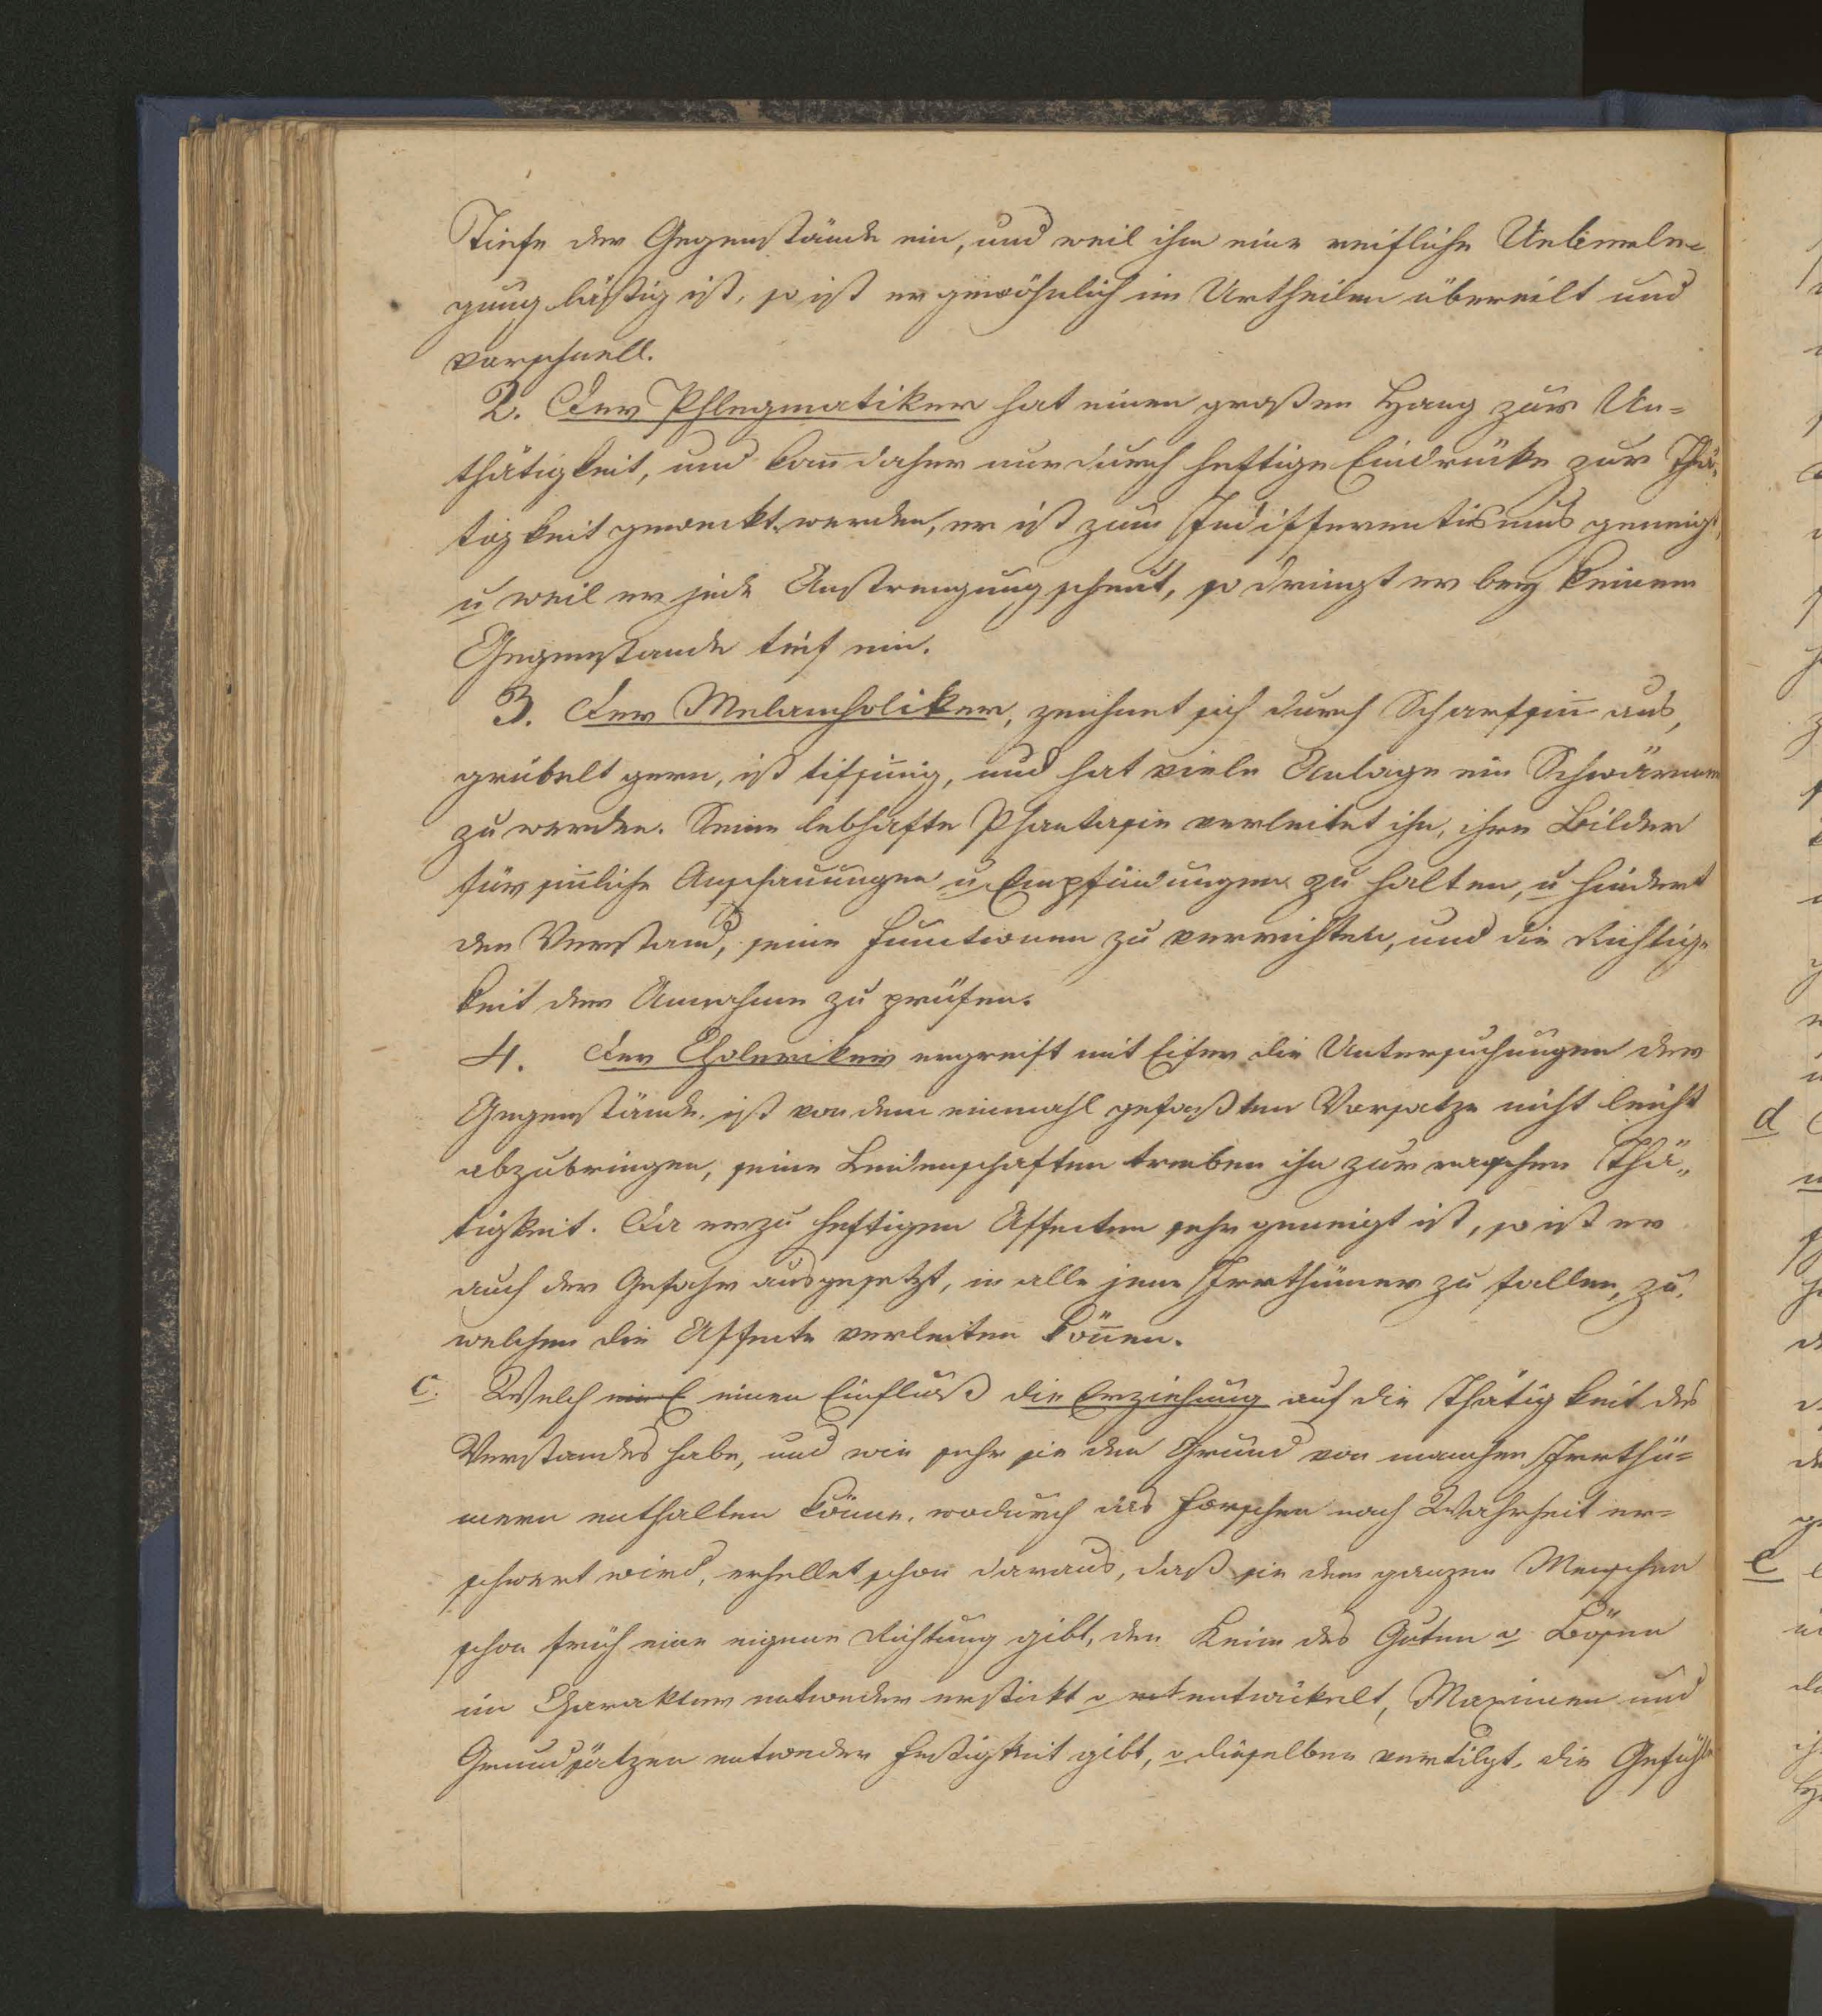 Tiefe der Gegenstände ein, und weil ihm eine reifliche Ueberle-
gung lästig ist, so ist er gewöhnlich im Urtheilen übereilt und
vorschnell.
2. Der Phlegmatiker hat einen großen Hang zur Un-
thätigkeit, und kan̄ daher nur durch heftige Eindrücke zur Thä-
tigkeit geweckt werden, er ist zum Indifferentismus geneigt,
u weil er jede Anstrengung scheut, so dringt er bey keinem
Gegenstande tief ein.
3. Der Melancholiker, zeichnet sich durch Scharfsin̄ aus,
grübelt gern, ist tifsin̄ig, und hat viele Anlage ein Schwärmer
zu werden. Seine lebhafte Phantasie verleitet ihn, ihre Bilder
für sin̄liche Anschauungen u Empfindungen zu halten, u hindert
den Verstand, seine Functionen zu verrichten, und die Richtig-
keit der Annahme zu prüfen.
4. Der Choleriker ergreift mit Eifer die Untersuchungen der
Gegenstände, ist von dem einmahl gefaßten Vorsatze nicht leicht
abzubringen, seine Leidenschaften treiben ihn zur raschen Thä-
tigkeit. Da er zu heftigen Affecten sehr geneigt ist, so ist er
auch der Gefahr ausgesetzt, in alle jene Irrthümer zu fallen, zu
welchen die Affecte verleiten kön̄en.
c. Welch ein E einen Einfluß die Erziehung auf die Thätigkeit des
Verstandes habe, und wie sehr sie den Grund von manchen Irrthü-
mern enthalten könne, wodurch das Forschen nach Wahrheit er-
schwert wird, erhellet schon daraus, daß sie dem ganzen Menschen
schon früh eine eigene Richtung gibt, den Keim des Guten o Bösen
im Charakter entweder erstickt o entwickelt, Maximen und
Grundsätzen entweder Festigkeit gibt, o dieselben vertilgt, die Gefühle
d
e